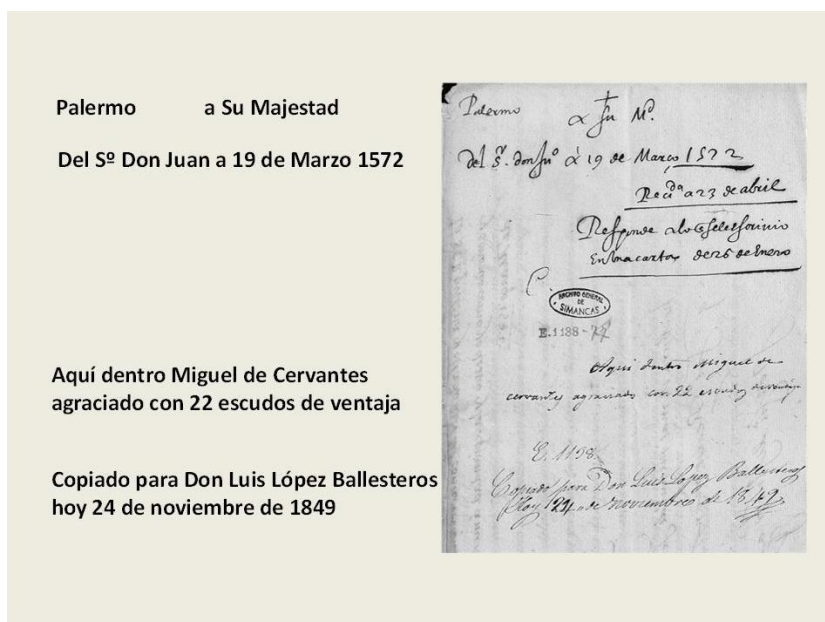 Palermo a Su Majestad
Del Sº Don Juan a 19 de Marzo 1572
Aquí dentro Miguel de Cervantes
agraciado con 22 escudos de ventaja
Copiado para Don Luis López Ballesteros
hoy 24 de noviembre de 1849
Palermo a Su Mᵈ.
Del Sʳ. don Juº a 19 de Março 1572
Recidª a 23 de abril
Responde a lo q se le escrivio
En una carta de 26 de Enero
ARCHIVO GENERAL
DE
SIMANCAS
E.1138-77
Aqui dentro Miguel de
cervantes agraciado con 22 escudos de ventaja
E. 1138.
Copiado para Don Luis Lopez Ballesteros
Hoy 24 de Noviembre de 1849